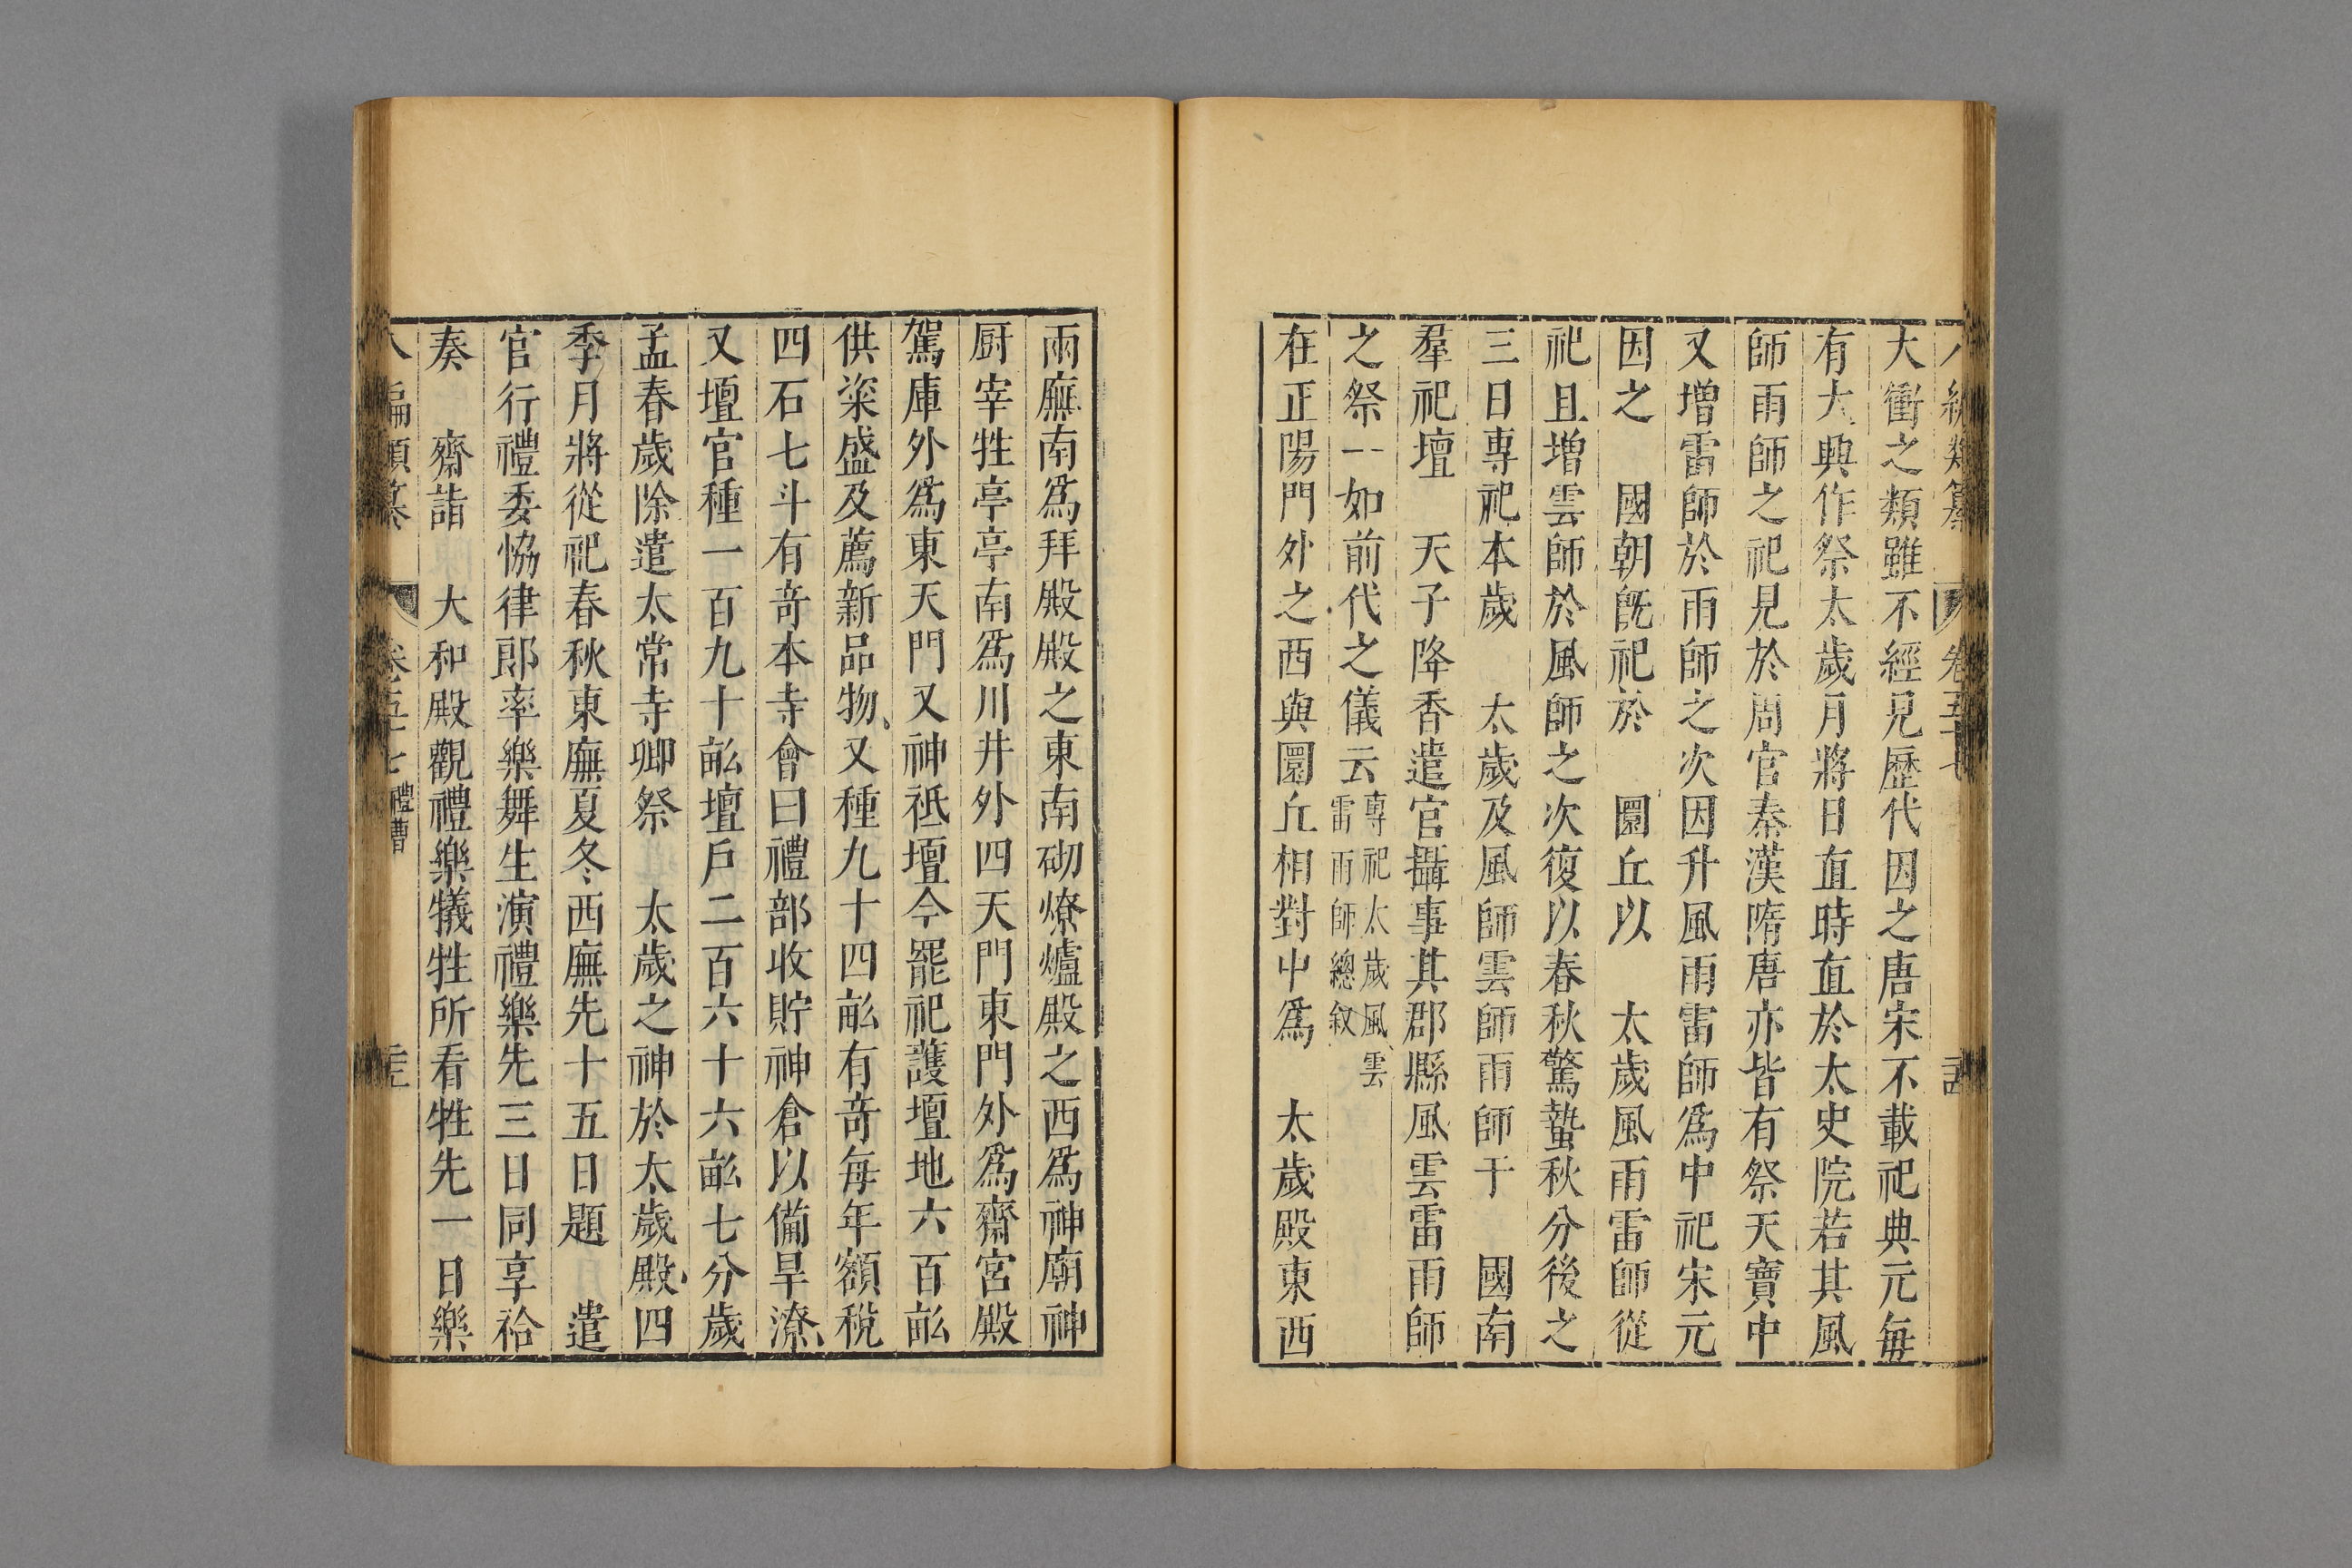 大衝之類雖不經見歷代因之唐宋不載祀典元每
有大興作祭太歲月將日直時直於太史院若其風
師雨師之祀見於周官秦漢隋唐亦皆有祭天寶中
又增雷師於雨師之次因升風雨雷師為中祀宋元
因之　國朝旣祀於　圜丘以　太歲風雨雷師從
祀且增雲師於風師之次復以春秋驚蟄秋分後之
三日專祀本歲　太歲及風師雲師雨師于　國南
羣祀壇　天子降香遣官攝事其郡縣風雲雷雨師
之祭一如前代之儀云專祀太歲風雲雷雨師總叙
在正陽門外之西與圜丘相對中爲　太歲殿東西
兩廡南爲拜殿殿之東南砌燎爐殿之西爲神廟神
厨宰牲亭亭南爲川井外四天門東門外爲齋宮殿
駕庫外爲東天門又神祇壇今罷祀護壇地六百畝
供粢盛及薦新品物又種九十四畝有奇每年額稅
四石七斗有奇本寺會曰禮部收貯神倉以備旱潦
又壇官種一百九十畝壇戶二百六十六畝七分歲
孟春歲除遣太常寺卿祭　太歲之神於太歲殿四
季月將從祀春秋東廡夏冬西廡先十五日題　遣
官行禮委恊律郎率樂舞生演禮樂先三日同享祫
奏　齋詣　大和殿觀禮樂犧牲所看牲先一日樂
八編類纂　卷五十七　禮曹